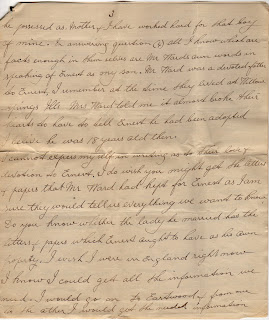 3
be possessed as Mother, I have worked hard for that boy
of mine. In answering question (3) all I know what are
facts enough in themselves are Mr Wards own words in
speaking of Ernest as my son. Mr Ward was a devoted father
to Ernest, I remember at the same they lived at
Springs Ills. Mr Ward told me it almost broke their
hearts to have to tell Ernest he had been adopted
I believe he was 18 years old then
I cannot express myself in writing as to their love &
devotion to Ernest. I do wish you might get the letters
& papers that Mr Ward had kept for Ernest as I am
sure they would tell us everything we want to know
Do you know whether the lady he married has the
letters, papers which Ernest ought to have as his own
property. I wish I were in England right now
I know I could get all the information we
need. I would go to Eastwood & from one
to the other I would get the needed information